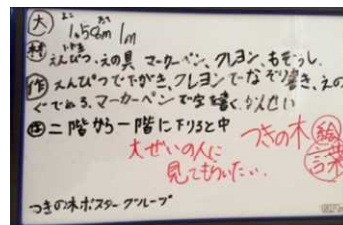 大 よこ 1.50m たて 1m
材 えんぴつ、えの具、マーカーペン、クレヨン、もぞうし。
作 えんぴつで下がき、クレヨンでなぞり書き、えの
ぐでぬる、マーカーペンで字を書く、かんせい
二階から一階に下りると中
大ぜいの人に
見てもらいたい。
つきの木 絵
言葉
つきの木ポスターグループ